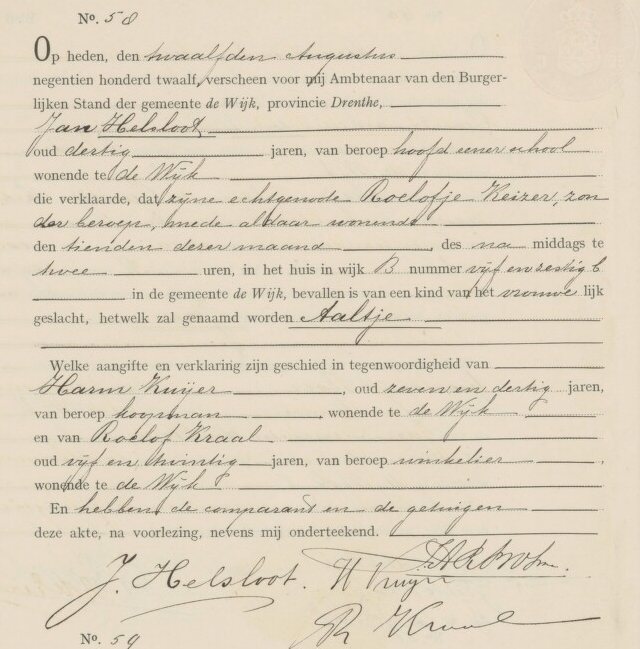 No. 58
Op heden, den twaalfden Augustus
negentien honderd twaalf, verscheen voor mij Ambtenaar van den Burger-
lijken Stand der gemeente de Wijk, provincie Drenthe,
Jan Helsloot
oud dertig jaren, van beroep hoofd eener school
wonende te de Wijk
die verklaarde, dat zijne echtgenoote Roelofje Keizer, zon
der beroep, mede aldaar wonende
den tienden dezer maand, des na middags te
twee uren, in het huis in wijk B nummer vijf en zestig C
in de gemeente de Wijk, bevallen is van een kind van het vrouwe lijk
geslacht, hetwelk zal genaamd worden Aaltje
Welke aangifte en verklaring zijn geschied in tegenwoordigheid van
Harm Kuijer, oud zeven en dertig jaren,
van beroep koopman, wonende te de Wijk
en van Roelof Kraal
oud vijf en twintig jaren, van beroep winkelier,
wonende te de Wijk
En hebben de comparant en de getuigen
deze akte, na voorlezing, nevens mij onderteekend.
J. Helsloot. H Kuijer
R Kraal
No. 59